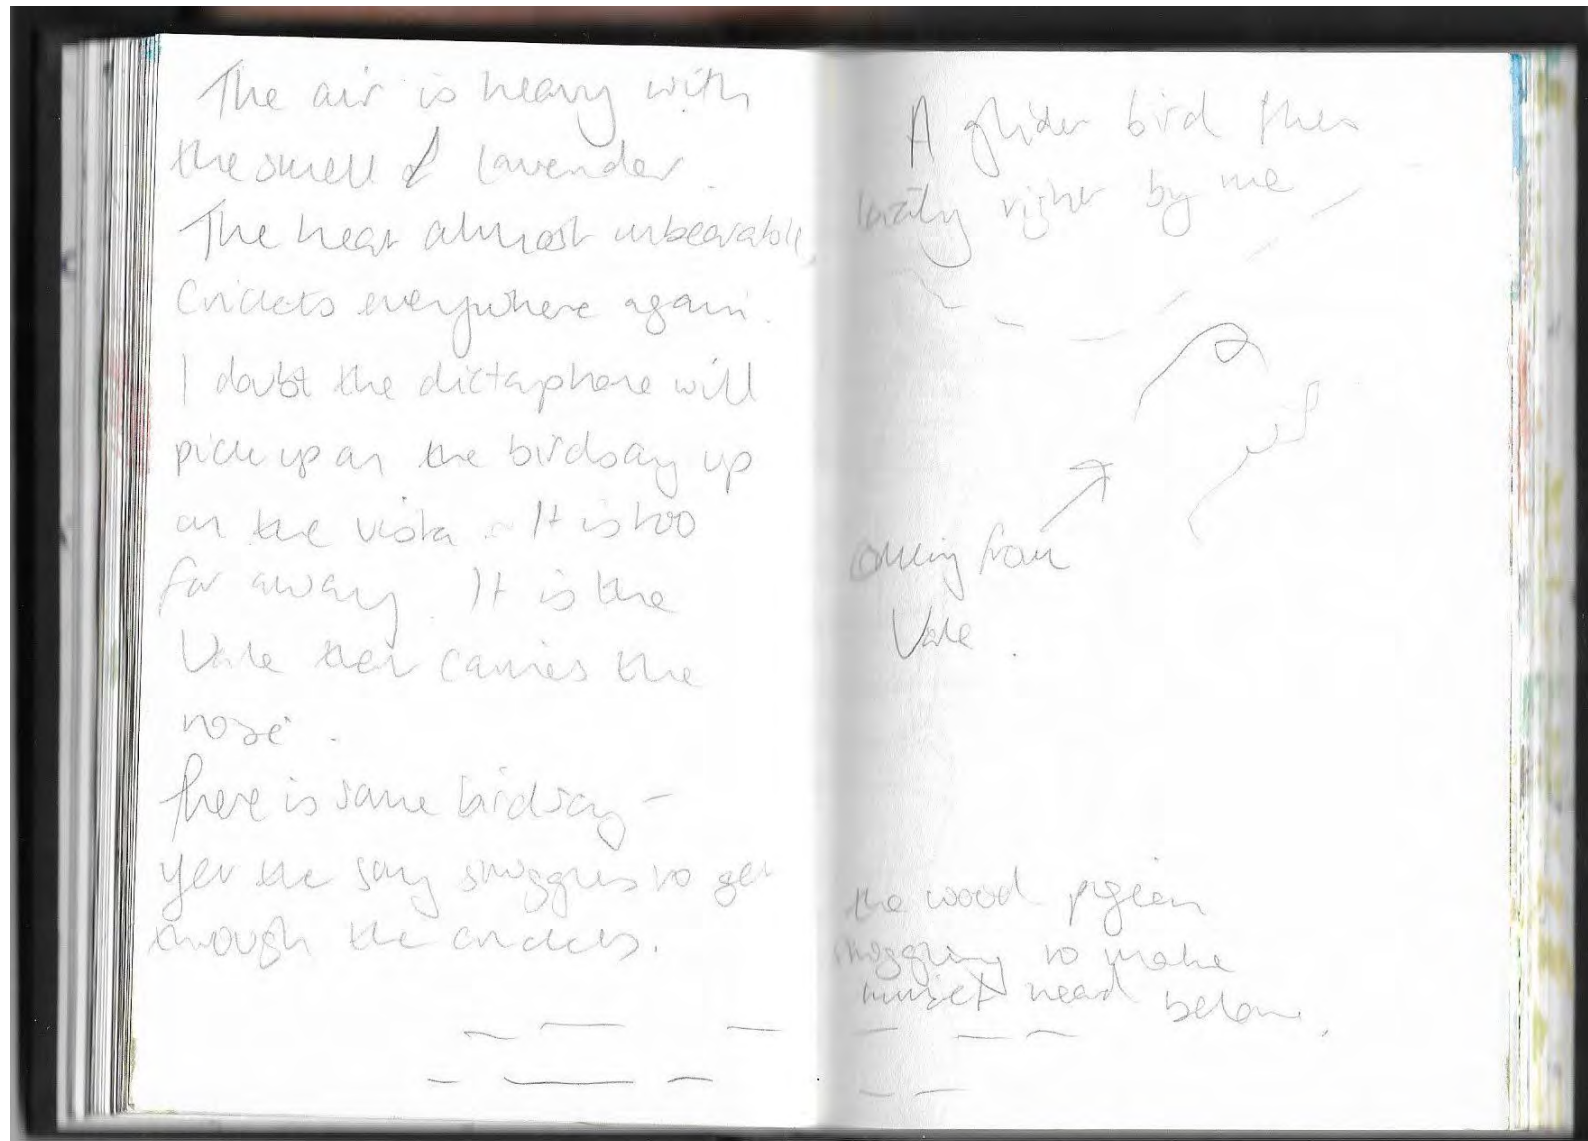 The air is heavy with
the smell of lavender.
The heat almost unbearable,
Crickets everywhere again.
I doubt the dictaphone will
pick up on the birdsong up
on the vista. It is too
far away. It is the
Vale that carries the
There is some birdsong –
yet the song struggles to get
through the crickets.
A glider bird flies
right by me
coming from
Vale.
the wood pigeon
struggling to make
heard below.